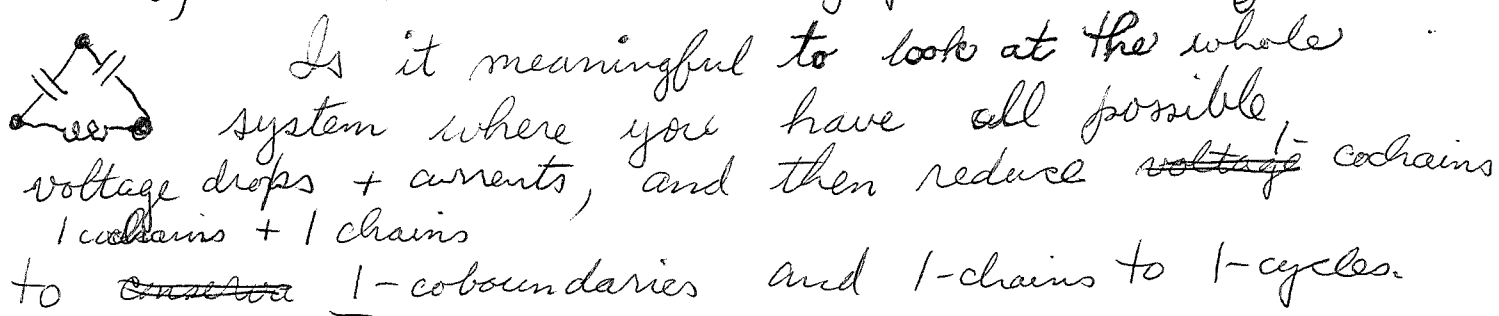 Is it meaningful to look at the whole
system where you have all possible
voltage drops + currents, and then reduce voltage 1- cochains
1 cochains + 1 chains
to conserva 1-coboundaries and 1-chains to 1-cycles.